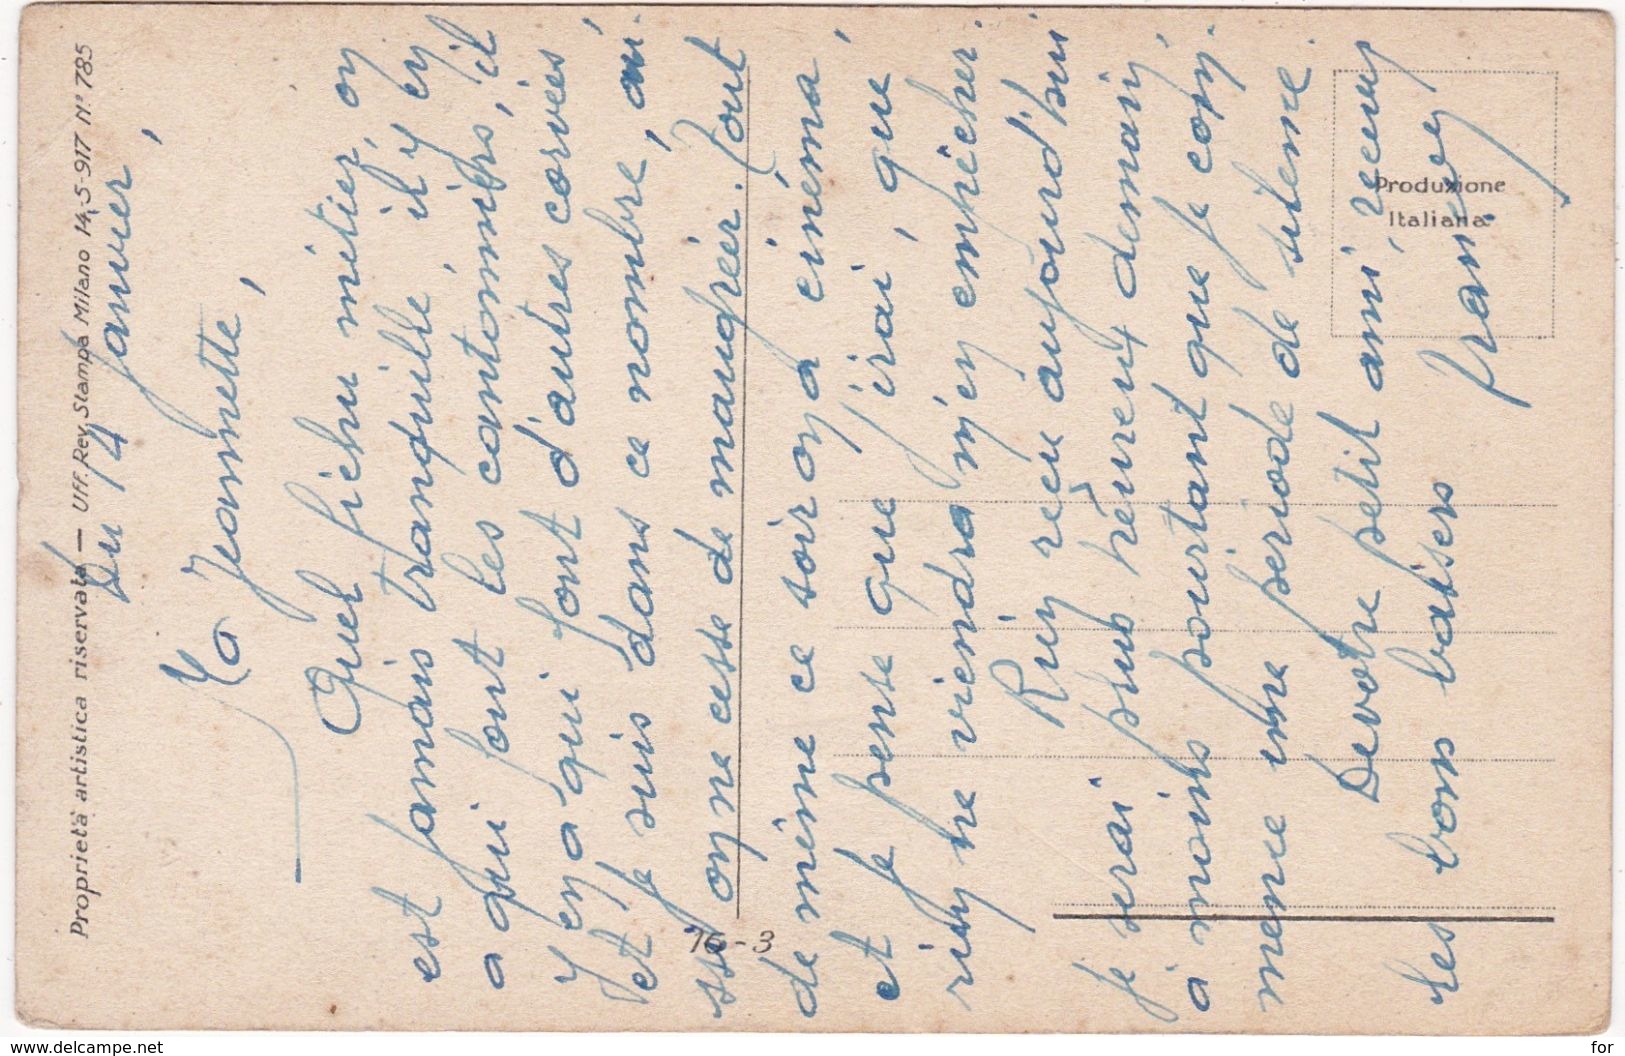 Proprietà artistica riservata — Uff. Rev. Stampa Milano 14-5-917 N° 785
Du 14 Janvier,
Ma Jeannette,
Quel fichu métier, on
est jamais tranquille il y en
a qui font les cantonniers, il
y en a qui font d'autres corvées
et je suis dans ce nombre, au
ssi on ne cesse de maugréer. Tout
de même ce soir on a cinéma
et je pense que j'irai, que
rien ne viendra m'en empêcher.
Rien reçu aujourd'hui
je serai plus heureux demain
à moins pourtant que je com
mence une période de silence.
Devotre petit ami, recevez
les bons baisers
16-3
Produzione
Italiana
www.delcampe.net
for